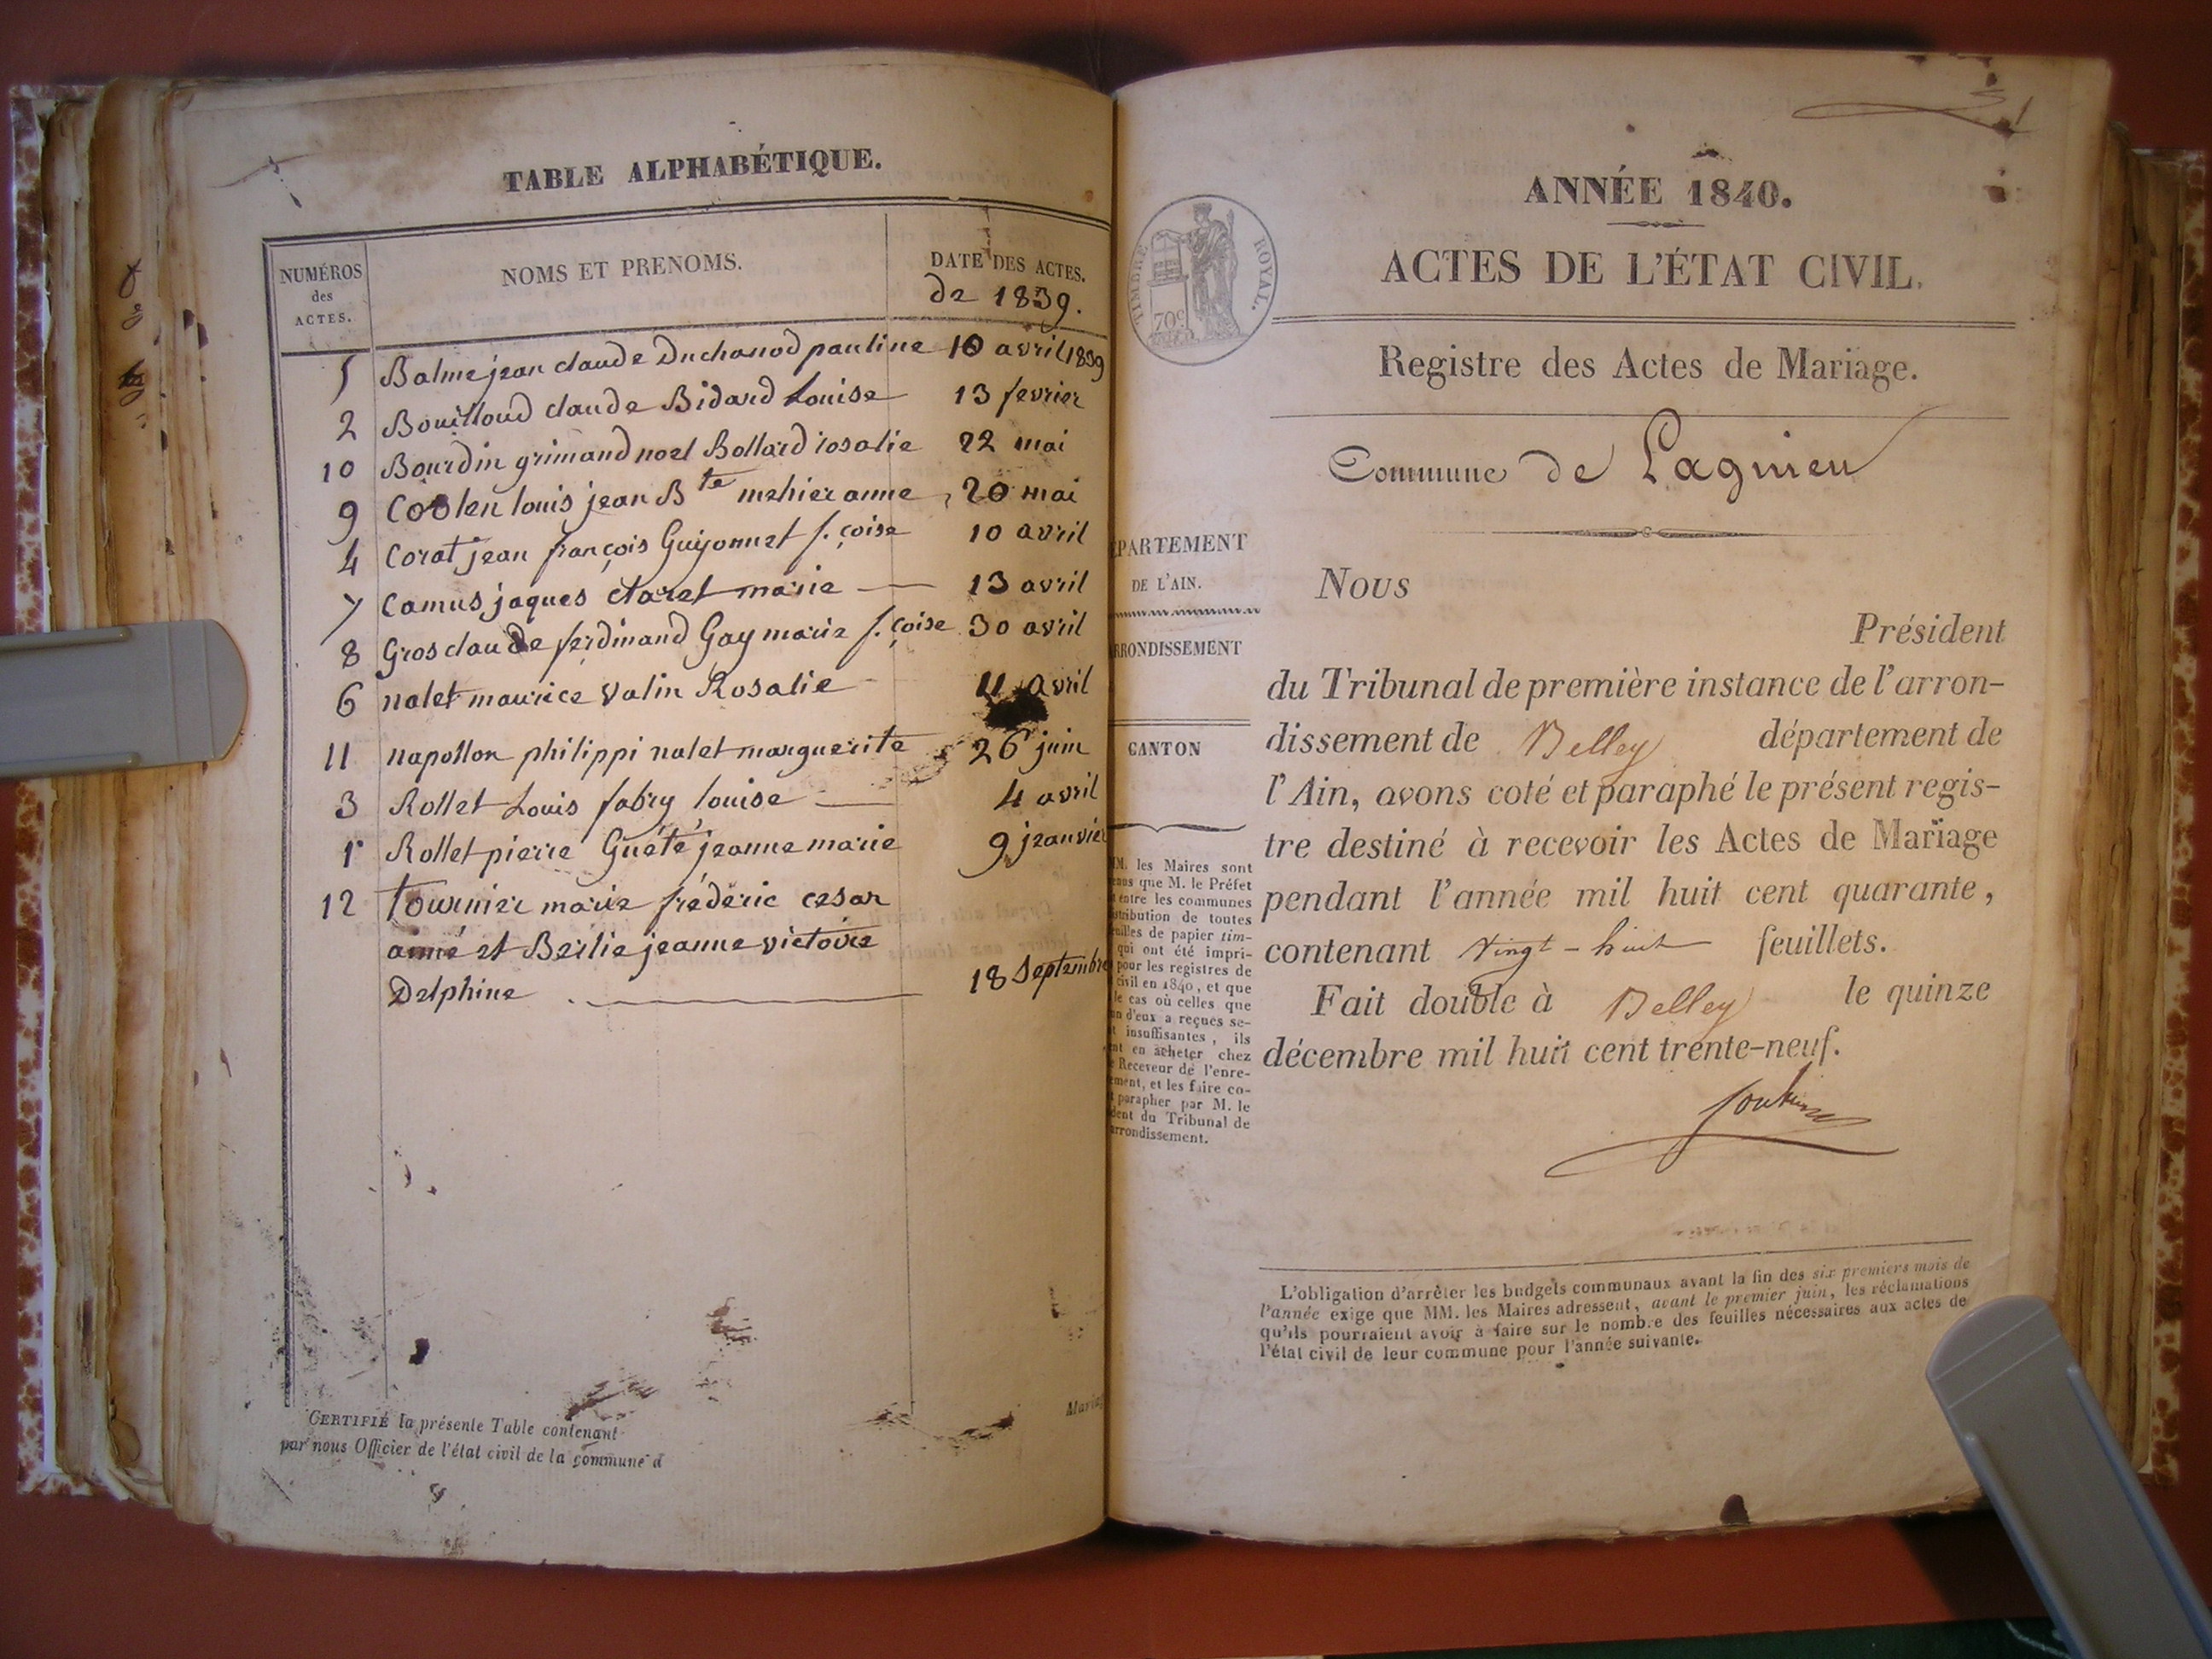 TABLE ALPHABÉTIQUE.
NUMÉROS
des
ACTES.
NOMS ET PRENOMS.
DATE DES ACTES.
de 1839.
5 Balme jean claude Duchanod pauline 10 avril 1839
2 Bouilloud claude Bidard Louise 13 fevrier
10 Bourdin grimand noel Bollard rosalie 22 mai
9 louis jean Bte mehier anne 20 mai
4 Corat jean françois Guyonnet f.çoise 10 avril
7 Camus jaques claret marie 13 avril
8 Gros claude ferdinand Gay marie f.çoise 30 avril
6 nalet maurice valin Rosalie 11 avril
11 napollon philippi nalet marguerite 26 juin
3 Rollet Louis fabry louise 4 avril
1 Rollet pierre Guété jeanne marie 9 jeanvier
12 tournier marie fréderic cesar
aimé et Berlie jeanne victoire
Delphine 18 Septembre
CERTIFIÉ la présente Table contenant
par nous Officier de l'état civil de la commune d
ANNÉE 1840.
ACTES DE L'ÉTAT CIVIL.
TIMBRE ROYAL.
70c
Registre des Actes de Mariage.
Commune de Lagnieu
PARTEMENT
DE L'AIN.
RRONDISSEMENT
CANTON
MM. les Maires sont
que M. le Préfet
entre les communes
tribution de toutes
uilles de papier tim-
qui ont été impri-
pour les registres de
civil en 1840, et que
le cas où celles que
un d'eux a reçues se-
t insuffisantes, ils
nt en acheter chez
e Receveur de l'enre-
ement, et les faire co-
t parapher par M. le
dent du Tribunal de
arrondissement.
Nous
Président
du Tribunal de première instance de l'arron-
dissement de Belley département de
l'Ain, avons coté et paraphé le présent regis-
tre destiné à recevoir les Actes de Mariage
pendant l'année mil huit cent quarante,
contenant vingt-huit feuillets.
Fait double à Belley le quinze
décembre mil huit cent trente-neuf.
L'obligation d'arrêter les budgets communaux avant la fin des six premiers mois de
l'année exige que MM. les Maires adressent, avant le premier juin, les réclamations
qu'ils pourraient avoir à faire sur le nombre des feuilles nécessaires aux actes de
l'état civil de leur commune pour l'année suivante.